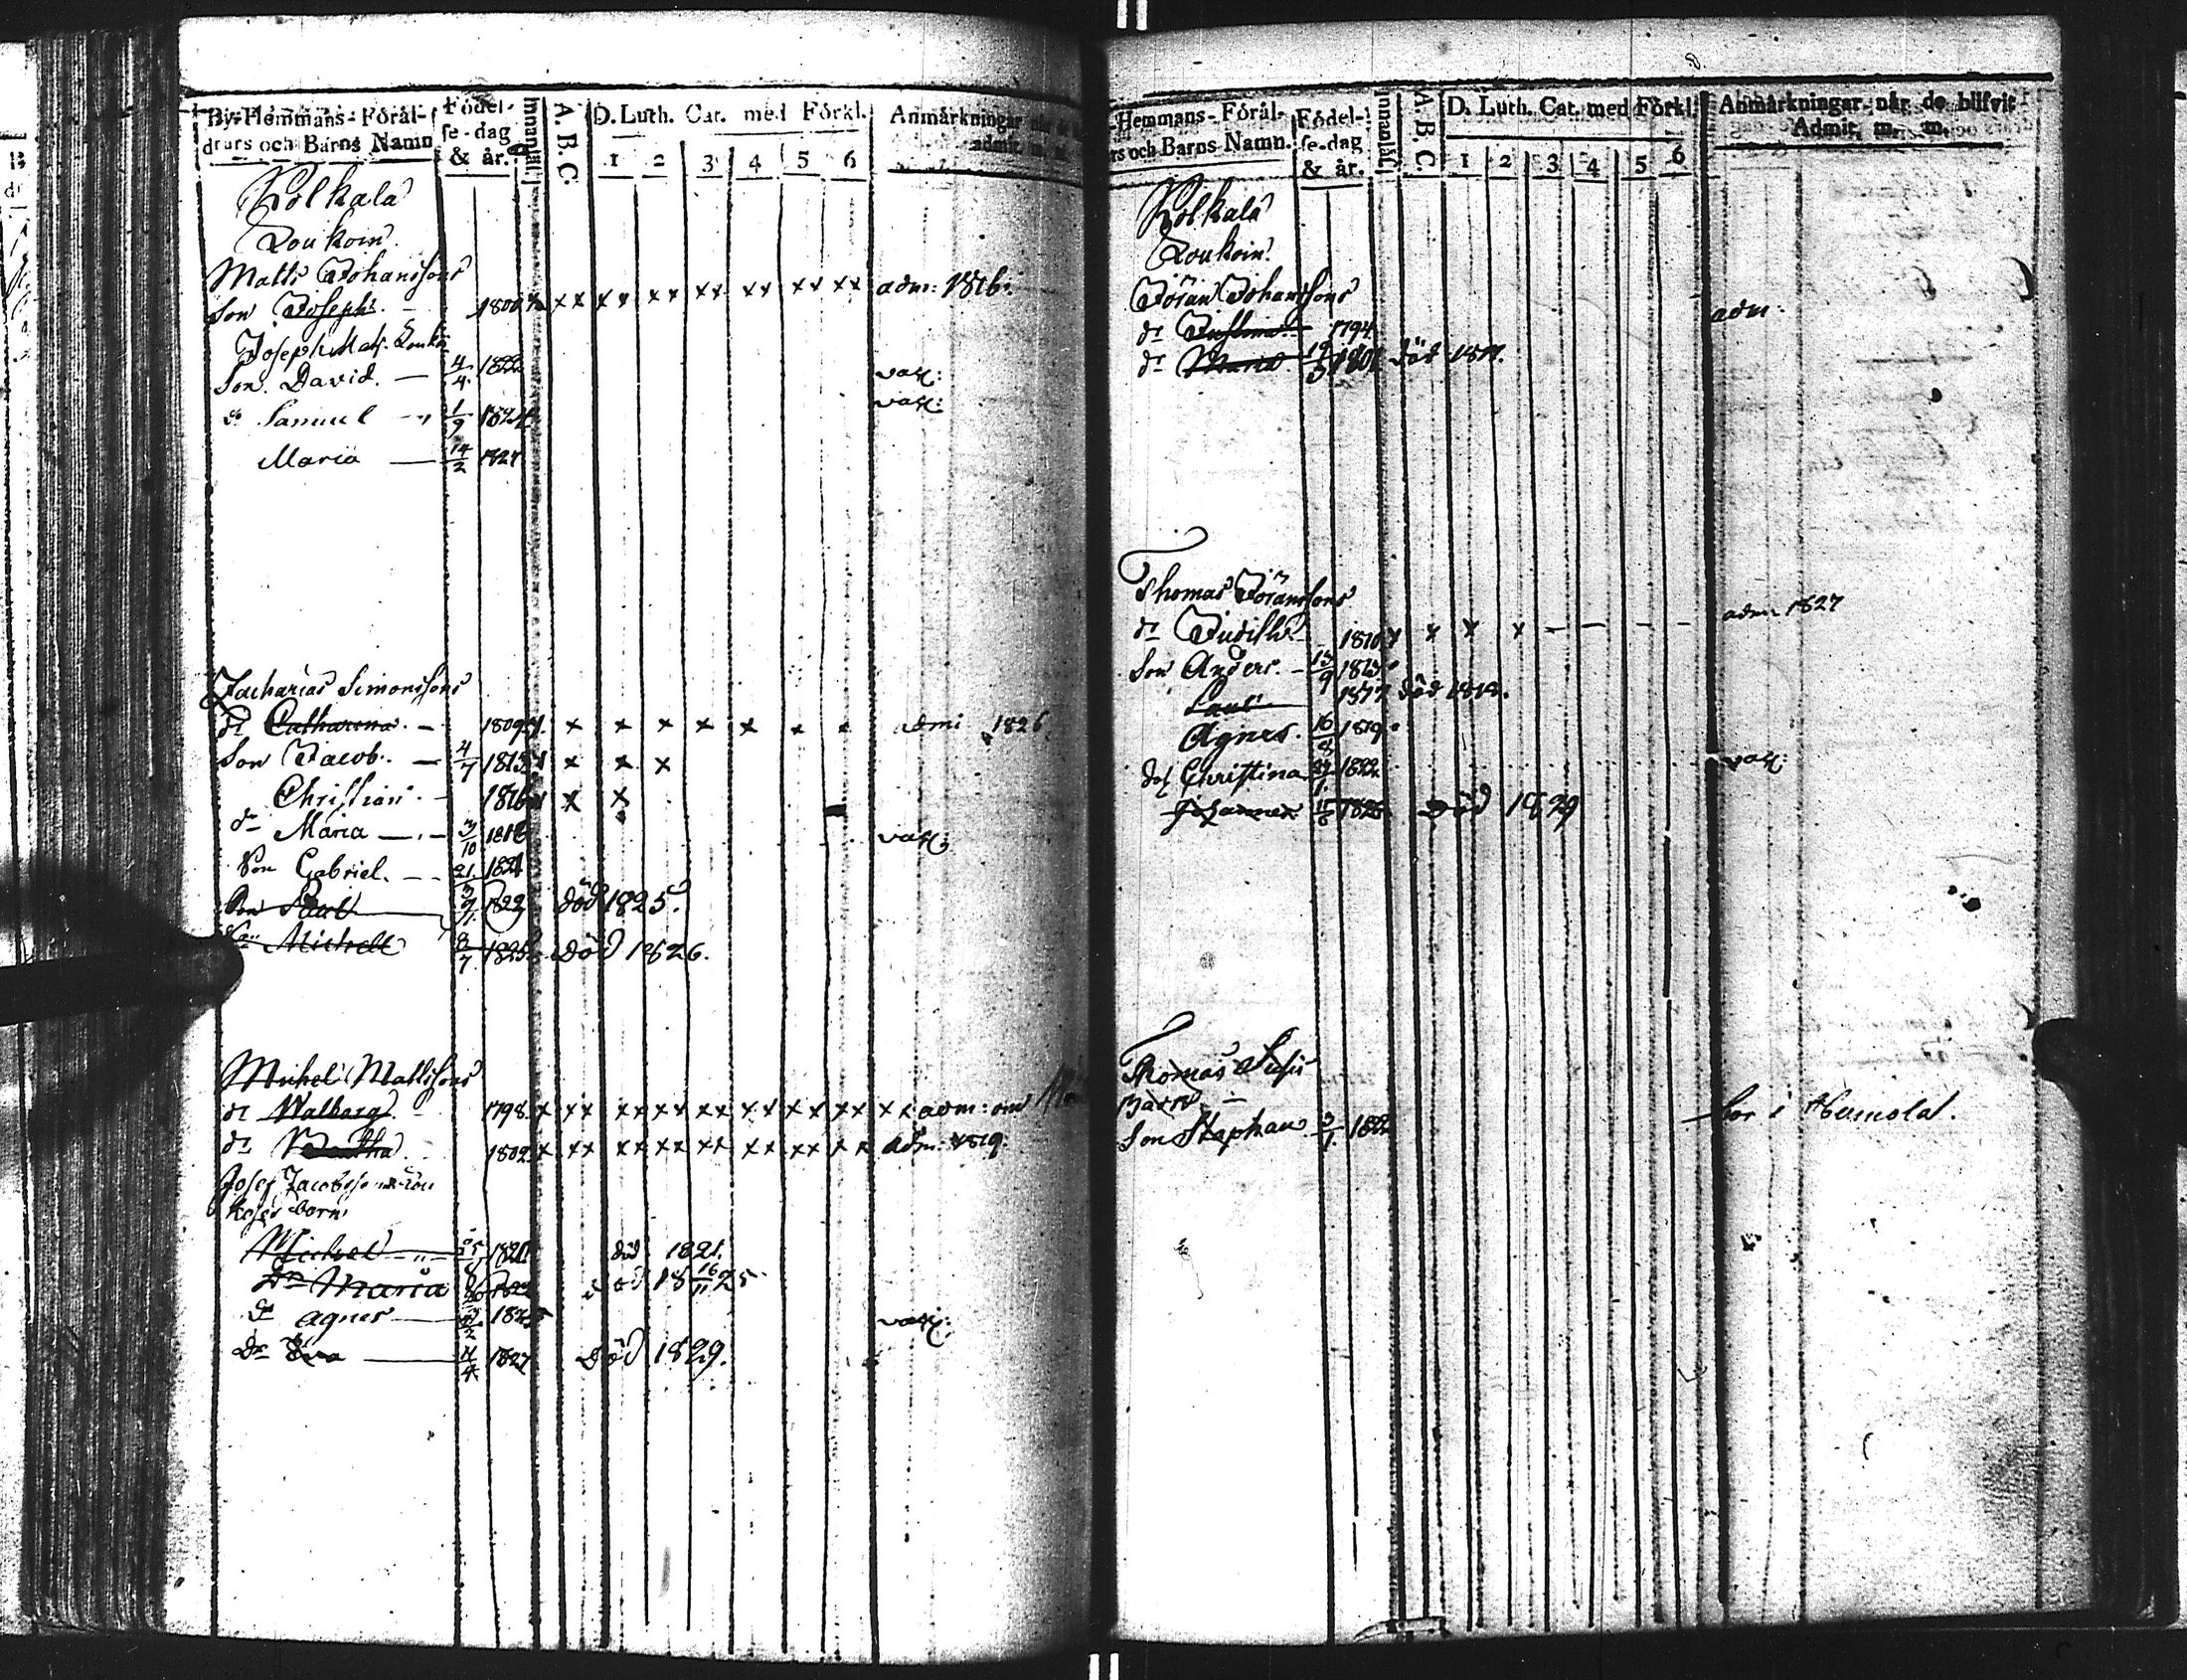 By-Hemmans-Föräl-
drars och Barns Namn
Födel-
se-dag
& år.
Innanläs:
A. B. C.
D. Luth. Cat. med Förkl.
1 2 3 4 5 6
Anmärkningar
admit. m. m.
Kolkala
Loukoin
Matts Johanssons
Son Joseph 1800 x xx xx xx xx xx xx xx adm: 1816
Joseph Mats. Louko
Son David. — 4/4 1822 vacc:
do Samuel 1/9 1824 vacc:
Maria — 14/2 1827
Zacharias Simonssons
dr Catharina — 1809 x x x x x x x x admi 1826
Son Jacob — 4/7 1813 x x x x
Christian 1816 x x x
dr Maria — 3/10 1818 vacc:
Son Gabriel. 21/3 1821
Son Paul 9/11 1823 död 1825.
Son Michell 8/7 1825 död 1826.
Michel Mattssons
dr Walborg. 1798 x xx xx xx xx xx xx xx xx adm: om
dr 1802 x xx xx xx xx xx xx xx adm: 1819.
Josef Jacobsson Lou
kos barn
Michel 1820 död 1821.
Dr Maria död 18 16/11 25
dr agnes 1825 vacc:
Dr Eva — 1827 Död 1829.
-Hemmans-Föräl-
rs och Barns Namn.
Födel-
se-dag
& år.
Innanläs:
A. B. C.
D. Luth. Cat. med Förkl.
1 2 3 4 5 6
Anmärkningar när de blifvit
Admit. m. m.
Kolkala
Loukoin
Jöran Johanssons
dr Justina 1794 adm:
dr Maria död
Thomas Jöranssons
dr Judith 1810 x x x x — — — — adm 1827
Son Anders. 13/9 1813
Paul 1817 död 1818.
Agnes. 16/8 1819
dot Christina 1822 vacc:
Johannes Död 1829
Thomas
Barn —
Son Stephan 3/1 1822 bor i